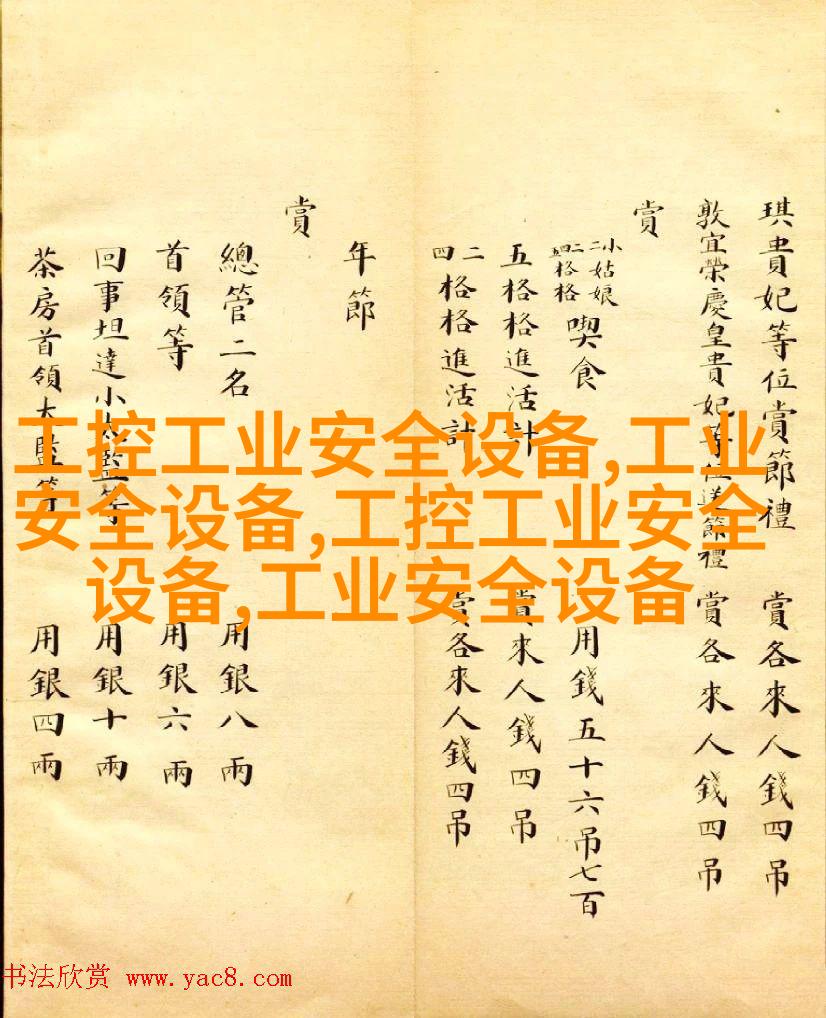 琪貴妃等位賞節禮 賞各來人錢四吊
敦宜榮慶皇貴妃等位送節禮 賞各來人錢四吊
賞
小姑娘
二二格格
四格格
喫食 用錢五十六吊七百
五格格進活計 賞來人錢四吊
二
四
格格進活計 賞各來人錢四吊
年節
賞
總管二名 用銀八兩
首領等 用銀六兩
回事坦達小太監等 用銀十兩
茶房首領太監等 用銀四兩
工控工业安全设备,工业
安全设备,工控工业安全
设备,工业安全设备
书法欣赏 www.yac8.com